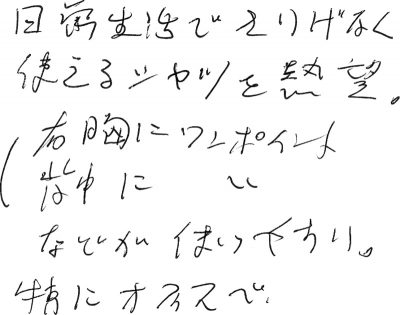 日常生活でさりげなく
使えるシャツを熱望。
(右胸にワンポイント
背中に 〃
などが使いやすい。
特にオフィスで